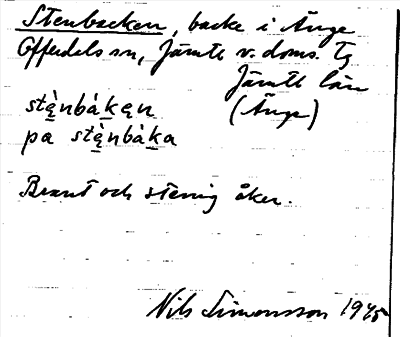 Stenbacken, backe i Änge
Offerdals sn, Jämtl v. doms. Tg
Jämtl län
stę̀nbák̲ęn (Änge)
pa stę̀nbák̲a
Brant och stenig åker.
Nils Simonsson 1945